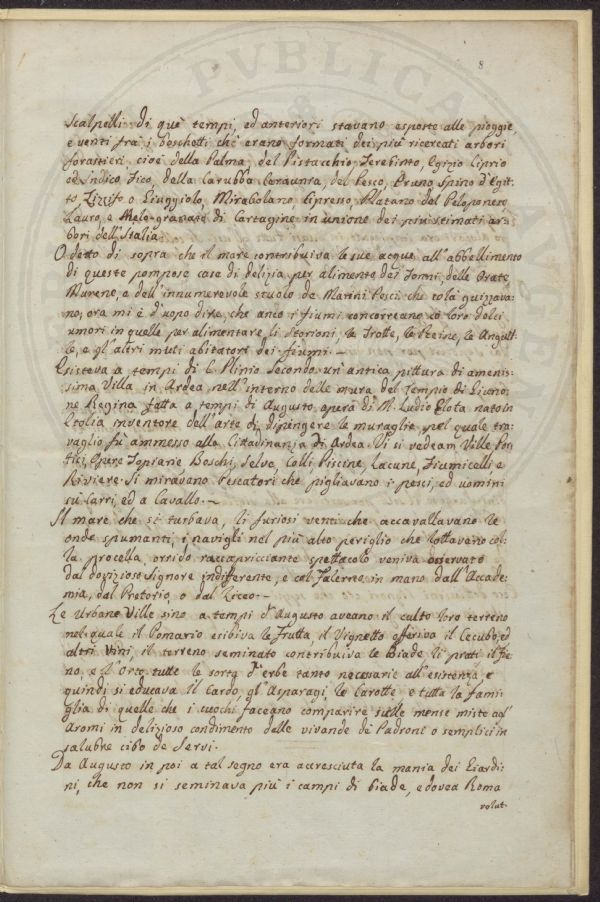 8
Scalpelli di què tempi, ed anteriori stavano esposte alle pioggie,
e venti frà i boschetti che erano formati dei più ricercati arbori
forastieri cioè della Palma, del Pistacchio, Terebinto, Egizio Ciprio
ed Indico Fico, della Carubba Ceraunia, del Pesco, Pruno Spino d'Egit-
to, Zizzifo o Giuggiolo, Mirabolano, Cipresso, Platano del Peloponeso
Lauro, e Melo-granato di Cartagine in unione dei più stimati ar-
bori dell'Italia.
O detto di sopra che il mare contribuiva le sue acque all'abbellimento
di queste pompose case di delizia per alimento dei Tonni, delle Orate
Murene, e dell'innumerevole stuolo de Marini Pesci che colà guizzava-
no, ora mi è d'uopo dire che anco i fiumi concorreano co' loro dolci
umori in quelle per alimentare li Storioni, le Trotte, le Reine, le Anguil-
le, e gl'altri muti abitatori dei fiumi. —
Esisteva a tempi di C. Plinio Secondo un'antica pittura di amenis-
sima Villa in Ardea nell'interno delle mura del Tempio di Giuno-
ne Regina fatta a tempi di Augusto opera di M. Ludio Elota nato in
Etolia inventore dell'arte di dipingere le muraglie, pel quale tra-
vaglio fù ammesso alla Cittadinanza di Ardea. Vi si vedeam Ville Por-
tici, Opere Topiarie Boschi, Selve, Colli, Piscine, Lacune, Fiumicelli, e
Riviere. Si miravano Pescatori che pigliavano i pesci, ed uomini
sù Carri, ed a Cavallo. —
Il mare che si turbava, li furiosi venti che accavallavano le
onde spumanti, i navigli nel più alto periglio che lottaveno col-
la procella, orrido raccapricciante spettacolo veniva osservato
dal dovizioso Signore indifferente, e col Falerno in mano dall'Accade-
mia, dal Pretorio, o dal Liceo. —
Le Urbane Ville sino a tempi d'Augusto aveano il culto loro terreno
nel quale il Pomario esibiva le Frutta, il Vignetto offeriva il Cecubo, ed
altri vini, il terreno seminato contribuiva le Biade, li prati il fie-
no, e l'Orto tutte le sorta d'erbe tanto necesarie all'esistenza, e
quindi si educava il Cardo, gl'Asparagi, le Carotte e tutta la fami-
glia di quelle che i cuochi faceano comparire sulle mense miste agl'
Aromi in delizioso condimento delle vivande de Padroni o semplici in
salubre cibo de Servi.
Da Augusto in poi a tal segno era accresciuta la mania dei Giardi-
ni, che non si seminava più i campi di biade, e dovea Roma
volut-
PVBLICA